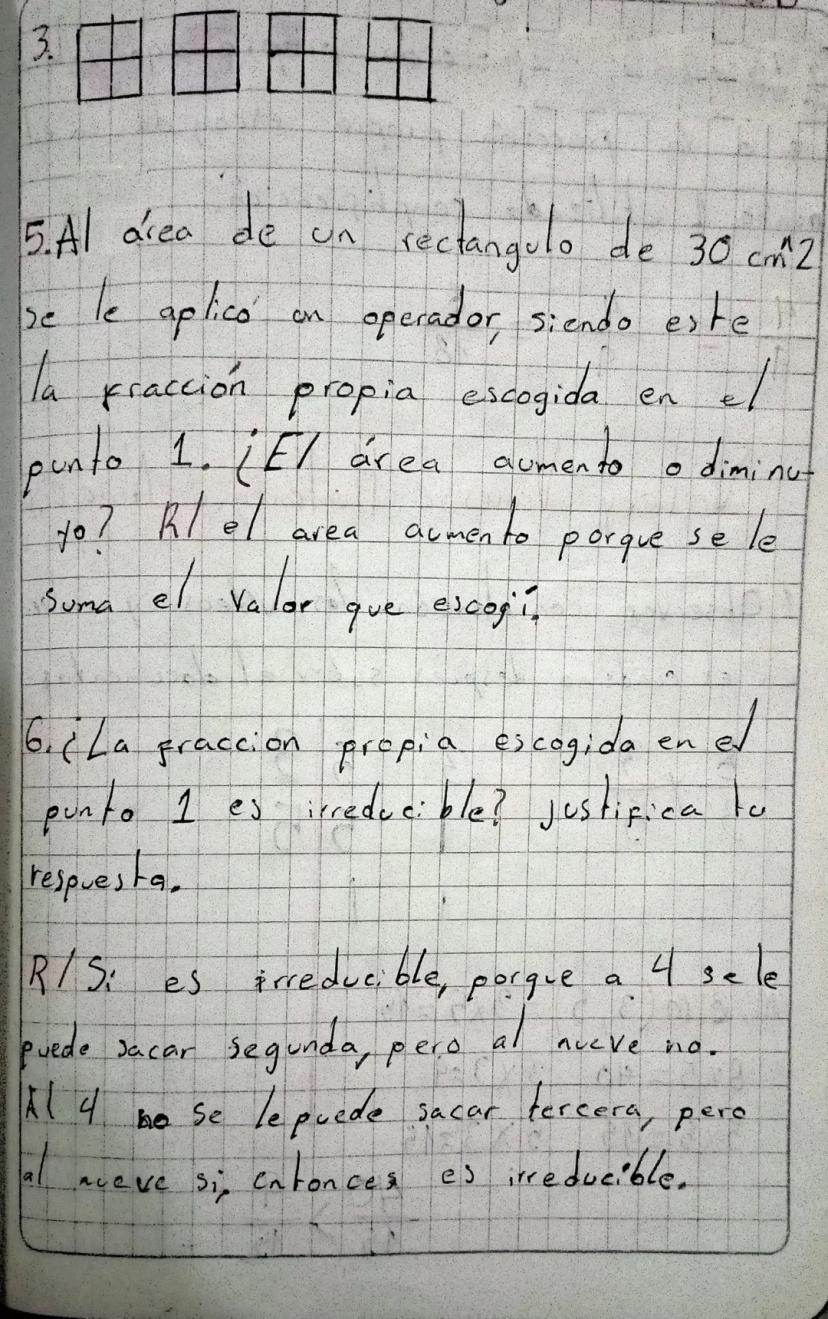 3.
5. Al área de un rectangulo de 30 cm^2
se le aplicó un operador, siendo este
la fracción propia escogida en el
punto 1. ¿El área aumento o diminu-
yo? R/ el area aumento porque se le
suma el valor que escogí.
6. ¿La fraccion propia escogida en el
punto 1 es irreducible? justifica tu
respuesta.
R/ Si es irreducible, porque a 4 se le
puede sacar segunda, pero al nueve no.
Al 4 no se le puede sacar tercera, pero
al nueve si, entonces es irreducible.